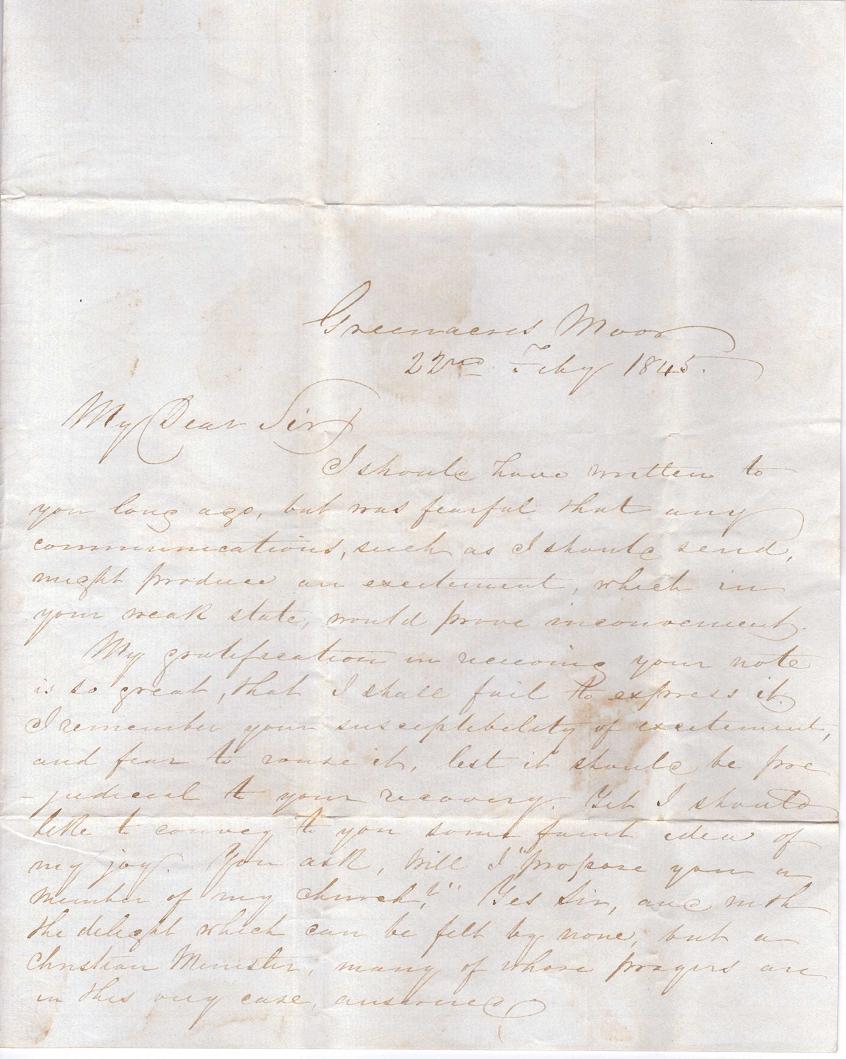 Greenacres Moor
22nd Feby 1845.
My Dear Sir
I should have written to
you long ago, but was fearful that any
communications, such as I should send,
might produce an excitement, which in
your weak state, would prove inconvenient.
My gratification in receiving your note
is so great, that I shall fail to express it.
I remember your susceptibility of excitement,
and fear to rouse it, lest it should be pre
-judicial to your recovery. Yet I should
like to convey to you some faint idea of
my joy. You ask, Will I "propose you a
member of my church?" Yes Sir, and with
the delight which can be felt by none, but a
Christian Minister, many of whose prayers are
in this very case, answered